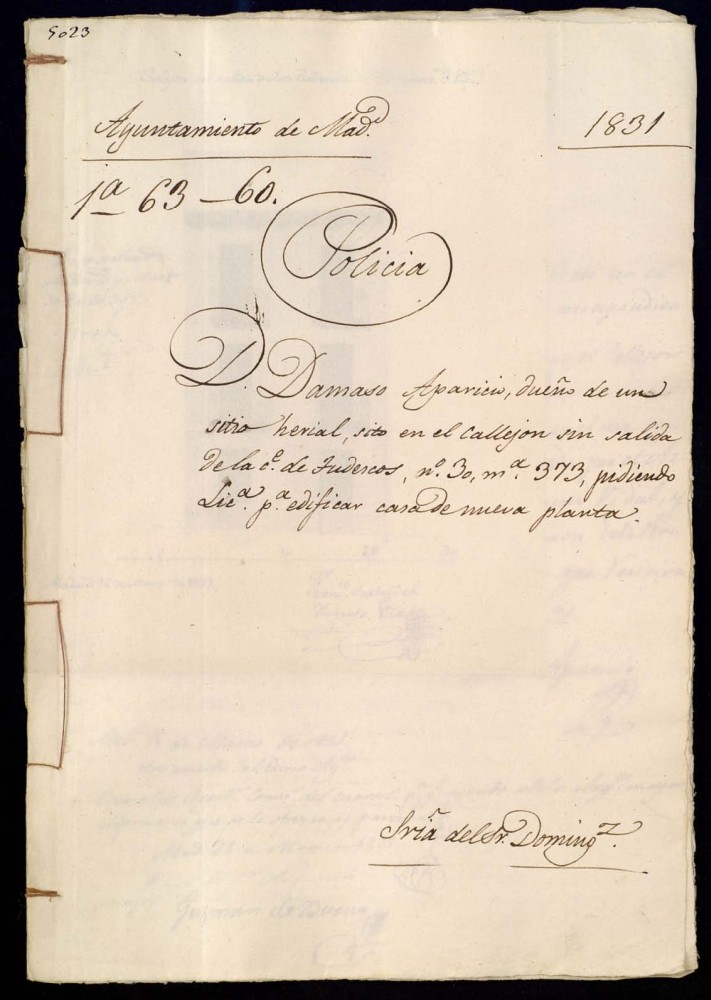 5023
Ayuntamiento de Mad.d
1831
1a 63-60.
Policia
D. Damaso Aparicio, dueño de un
sitio herial, sito en el Callejon sin salida
de la c.e de Tudescos, n.o 30, m.a 373, pidiendo
Lic.a p.a edificar casa de nueva planta.
Sría del Sr. Doming.z
Guzman